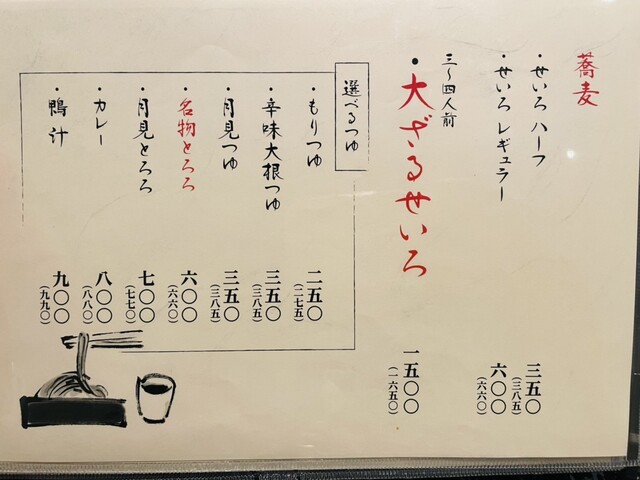 蕎麦
・せいろ ハーフ 三五〇
（三八五）
・せいろ レギュラー 六〇〇
（六六〇）
三〜四人前
・大ざるせいろ 一五〇〇
（一六五〇）
選べるつゆ
・もりつゆ 二五〇
（二七五）
・辛味大根つゆ 三五〇
（三八五）
・月見つゆ 三五〇
（三八五）
・名物とろろ 六〇〇
（六六〇）
・月見とろろ 七〇〇
（七七〇）
・カレー 八〇〇
（八八〇）
・鴨汁 九〇〇
（九九〇）